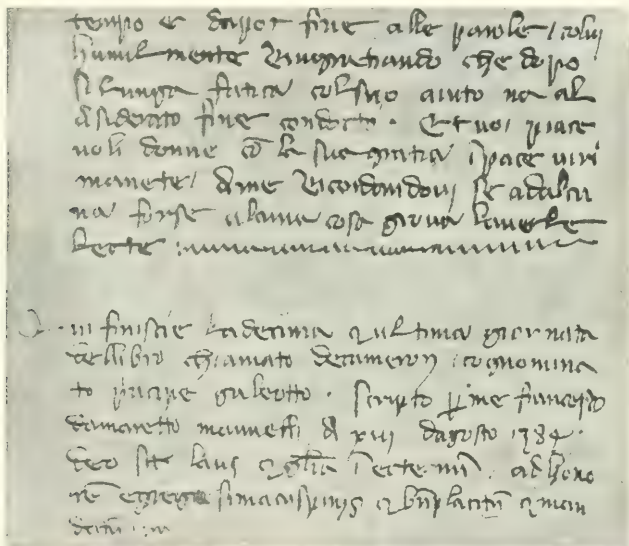 tempo e dapor fine alle parole, colui
humilmente Ringratiando che dopo
si lunga faticha col suo aiuto na al
disiderato fine condocto. Et voi piace
voli donne cō la sua gratia ī pace vivi
manete, di me Ricordandovi se adalcu
na forse alcuna cosa giova laverle
lecte
Qui finiscie la decima et ultima giornata
del libro chiamato decameron, cognomina
to principe galeotto. Scripto p me francescho
damaretto mannelli A dì xiii dagosto 1384.
Deo sit laus et glia ī ecternū. ad hono
rē et
et bnplacitū et man
datū